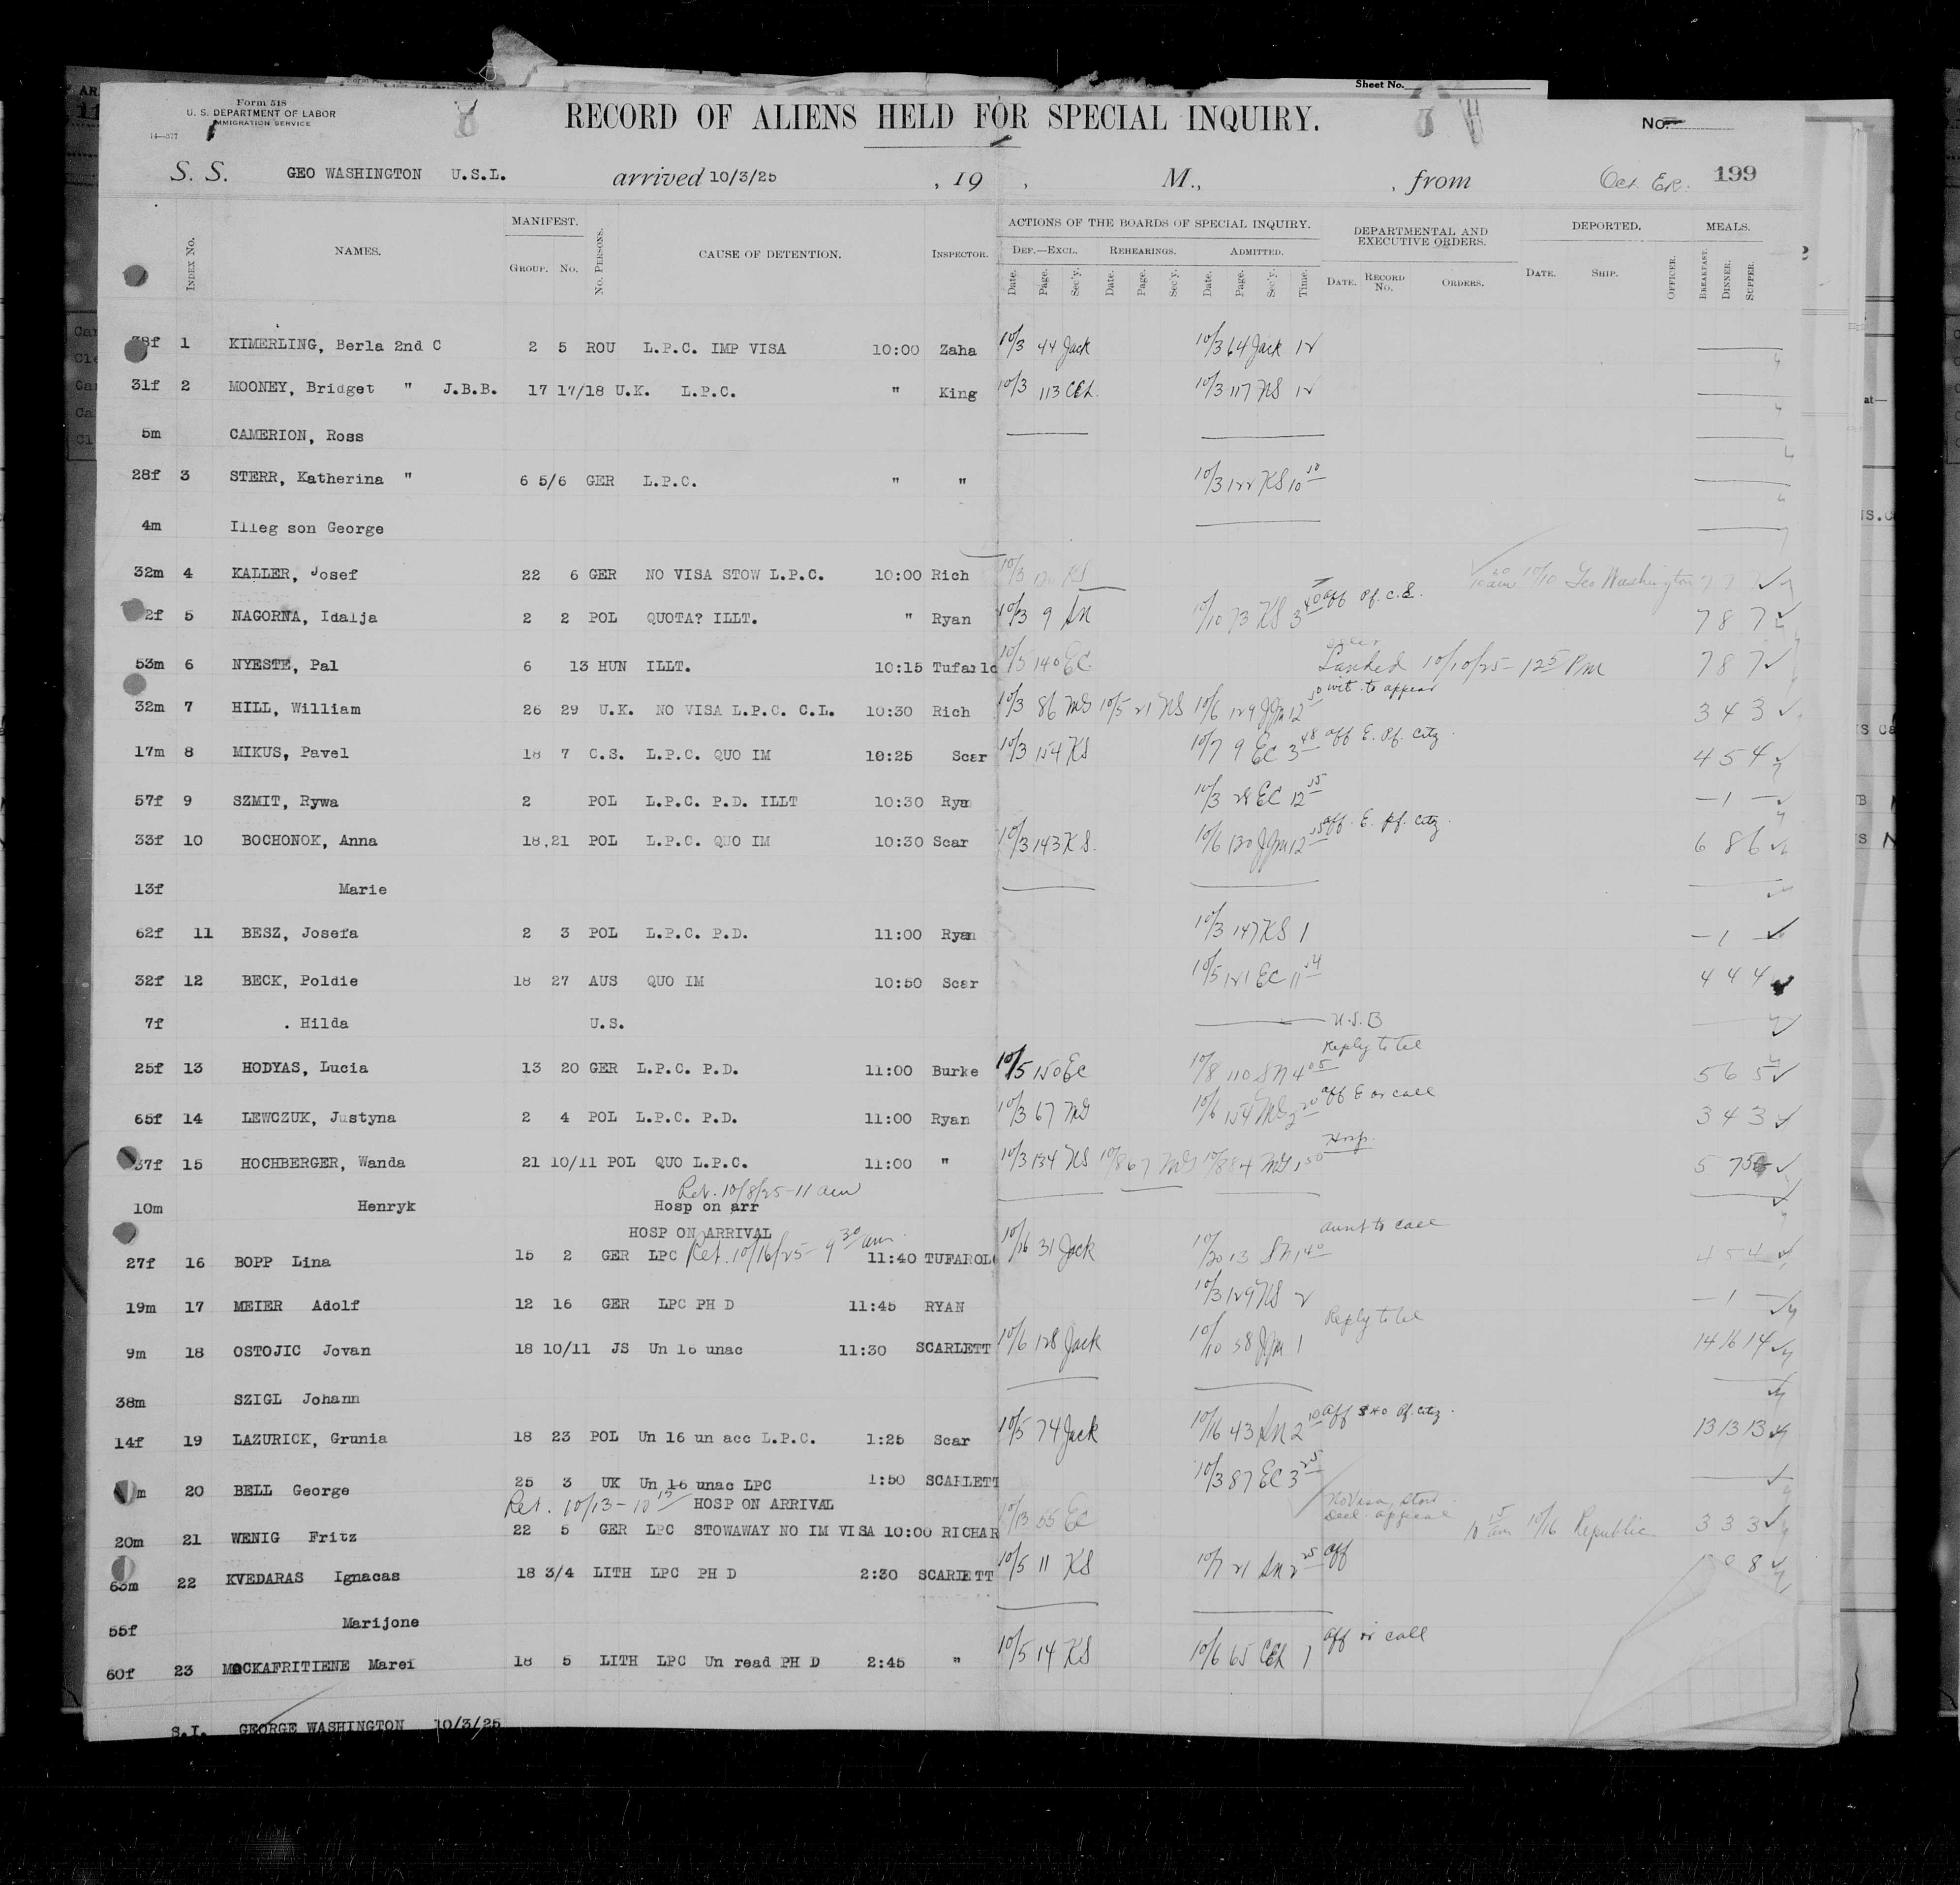 Sheet No.
Form 518
U. S. DEPARTMENT OF LABOR
IMMIGRATION SERVICE
14—377
RECORD OF ALIENS HELD FOR SPECIAL INQUIRY.
No.
S. S. GEO WASHINGTON U.S.L. arrived 10/3/25 , 19 , M., , from Oct. 199
INDEX No. NAMES. MANIFEST. GROUP. NO. NO. PERSONS. CAUSE OF DETENTION. INSPECTOR. ACTIONS OF THE BOARDS OF SPECIAL INQUIRY. DEPARTMENTAL AND EXECUTIVE ORDERS. DEPORTED. MEALS.
DEF.—EXCL. REHEARINGS. ADMITTED.
Date. Page. Sec'y. Date. Page. Sec'y. Date. Page. Sec'y. Time. DATE. RECORD No. ORDERS. DATE. SHIP. OFFICER. BREAKFAST. DINNER. SUPPER.
38f 1 KIMERLING, Berla 2nd C 2 5 ROU L.P.C. IMP VISA 10:00 Zaha 10/3 44 Jack 10/3 64 Jack 12
31f 2 MOONEY, Bridget " J.B.B. 17 17/18 U.K. L.P.C. " King 10/3 113 CEL. 10/3 117 NS 12
5m CAMERION, Ross
28f 3 STERR, Katherina " 6 5/6 GER L.P.C. " " 10/3 122 KS 10 50
4m Illeg son George
32m 4 KALLER, Josef 22 6 GER NO VISA STOW L.P.C. 10:00 Rich 10/3 KS 10/10 Geo Washington 7 7 7
2f 5 NAGORNA, Idalja 2 2 POL QUOTA? ILLT. " Ryan 10/3 9 SN 10/10 73 KS 3 40 aff Pf. C.S. 7 8 7
53m 6 NYESTE, Pal 6 13 HUN ILLT. 10:15 Tufarlo 10/5 140 EC Landed 10/10/25 - 12 5 Pm 7 8 7
32m 7 HILL, William 26 29 U.K. NO VISA L.P.C. C.L. 10:30 Rich 10/3 86 MG 10/5 21 NS 10/6 129 JJM 12 50 wit. to appear 3 4 3
17m 8 MIKUS, Pavel 18 7 C.S. L.P.C. QUO IM 10:25 Scar 10/3 154 KS 10/7 9 EC 3 48 aff E. Pf. City 4 5 4
57f 9 SZMIT, Rywa 2 POL L.P.C. P.D. ILLT 10:30 Rya 10/3 28 EC 12 35 — 1 —
33f 10 BOCHONOK, Anna 18,21 POL L.P.C. QUO IM 10:30 Scar 10/3 143 KS. 10/6 130 JJM 12 55 aff. E. Pf. City. 6 8 6
13f Marie
62f 11 BESZ, Josefa 2 3 POL L.P.C. P.D. 11:00 Ryan 10/3 147 KS 1 — 1 —
32f 12 BECK, Poldie 18 27 AUS QUO IM 10:50 Scar 10/5 121 EC 11 54 4 4 4
7f . Hilda U.S. U.S.B
25f 13 HODYAS, Lucia 13 20 GER L.P.C. P.D. 11:00 Burke 10/5 150 EC 10/8 110 SN 4 05 Reply to tel 5 6 5
65f 14 LEWCZUK, Justyna 2 4 POL L.P.C. P.D. 11:00 Ryan 10/3 67 MG 10/6 154 MG 2 20 aff E or call 3 4 3
37f 15 HOCHBERGER, Wanda 21 10/11 POL QUO L.P.C. 11:00 " 10/3 134 NS 10/8 67 MG 10/8 84 MG 1 50 Hosp. 5 7 5
Ret. 10/8/25 - 11 am
10m Henryk Hosp on arr
HOSP ON ARRIVAL
27f 16 BOPP Lina 15 2 GER LPC Ret. 10/16/25 - 9 30 am 11:40 TUFAROLO 10/16 31 Jack 10/20 13 SN 1 40 aunt to call 4 5 4
19m 17 MEIER Adolf 12 16 GER LPC PH D 11:45 RYAN 10/3 129 NS 2 — 1 —
9m 18 OSTOJIC Jovan 18 10/11 JS Un 16 unac 11:30 SCARLETT 10/6 128 Jack 10/10 58 JJM 1 Reply to tel 14 16 14
38m SZIGL Johann
14f 19 LAZURICK, Grunia 18 23 POL Un 16 un acc L.P.C. 1:25 Scar 10/5 74 Jack 10/16 43 SN 2 10 aff Pf. City. 13 13 13
m 20 BELL George 25 3 UK Un 16 unac LPC 1:50 SCARLETT 10/3 87 EC 3 25
Ret. 10/13 - 10 15 HOSP ON ARRIVAL
20m 21 WENIG Fritz 22 5 GER LPC STOWAWAY NO IM VISA 10:00 RICHAR 10/13 55 EC No Visa, Stow. Decl. appeal 10 15 am 10/16 Republic 3 3 3
65m 22 KVEDARAS Ignacas 18 3/4 LITH LPC PH D 2:30 SCARLETT 10/5 11 KS 10/7 21 SN 2 25 aff 8
55f Marijone
60f 23 MOCKAFRITIENE Marei 18 5 LITH LPC Un read PH D 2:45 " 10/5 14 KS 10/6 65 CEL 1 aff or call
S.I. GEORGE WASHINGTON 10/3/25